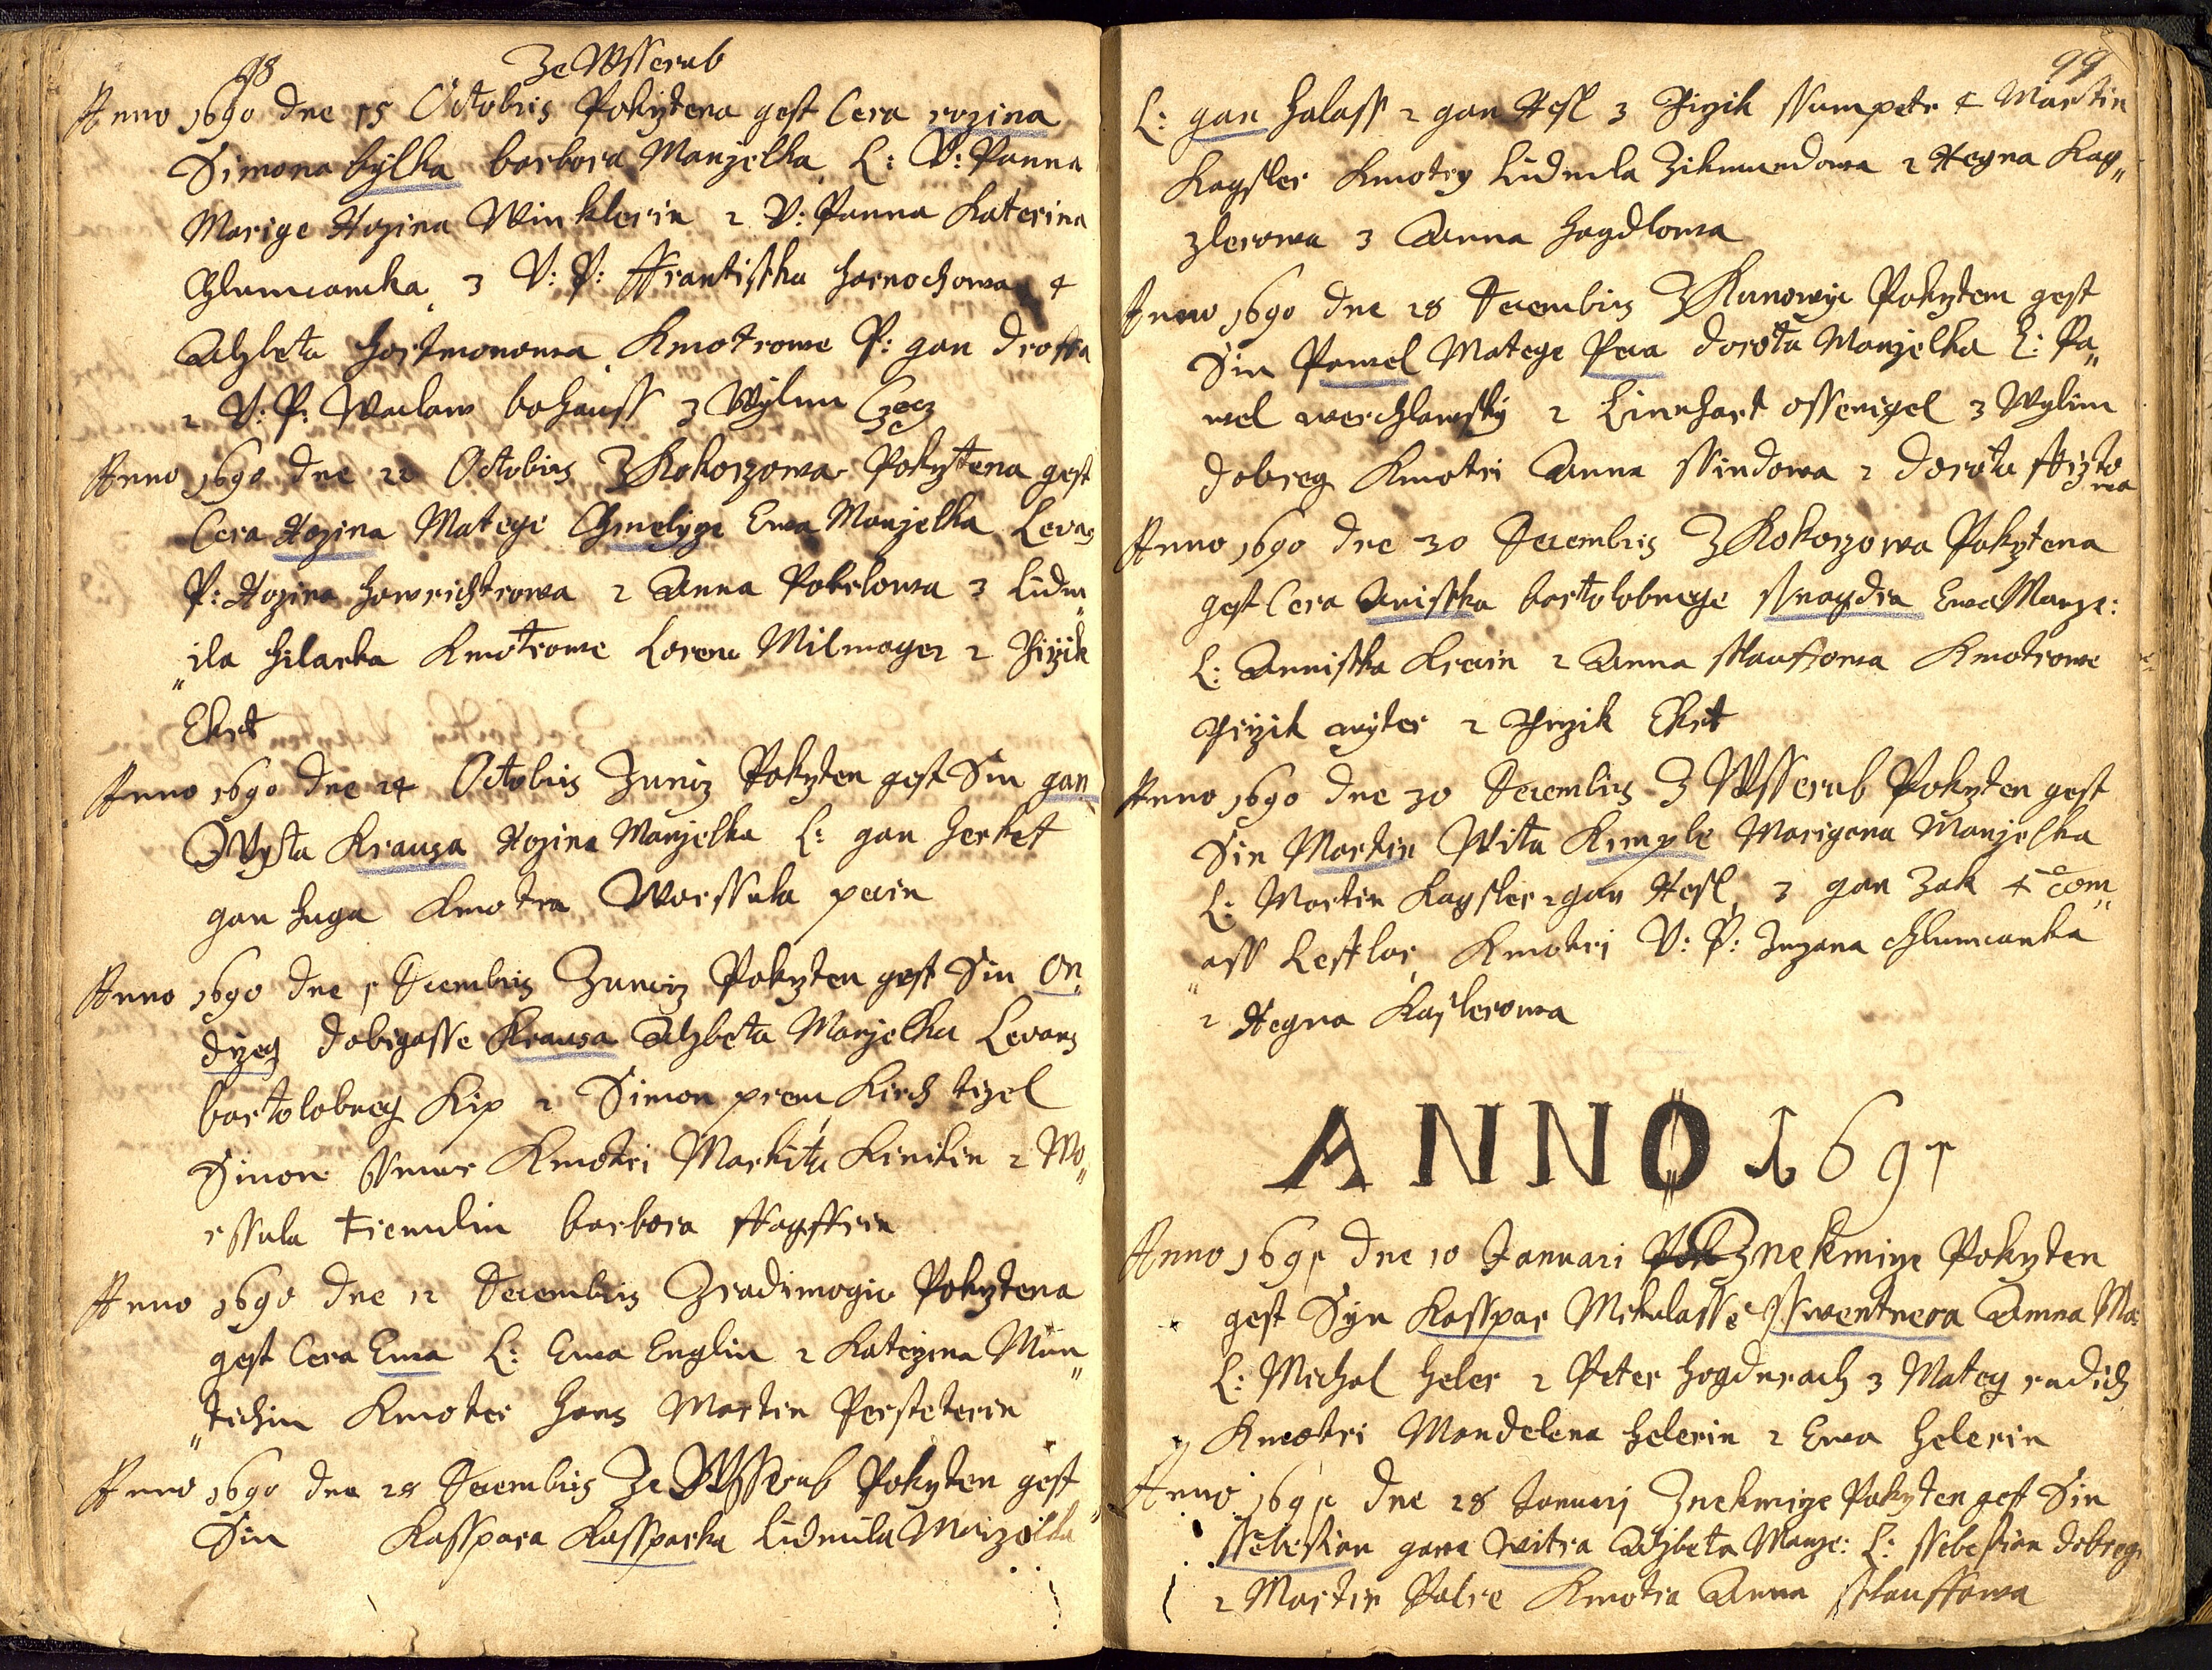 98
Ze Wsserub
Anno 1690 dne 15 Octobris Pokrztena gest Cera rozina
Simona bylka barbora Manzelka L: U: Panna
Marige Rozina Winklerin 2 U: Panna Katerina
Chlumcanska 3 U: P: Frantisska harnochowa 4
Alzbeta hortmonowa Kmotrowe P: gan drossa
2 U: P: Waclaw bohauss 3 Wylim
Anno 1690 dne 22 Octobris Z Kokorzowa Pokrztena gest
Cera Rozina Matege Chmelyrze Ewa Manzelka Levans
P: Rozina howrichtrowa 2 Anna Pobelowa 3 Lidm
"ila hilarka Kmotrowe Lorenc Milmayer 2 Girzik
Ekrt
Anno 1690 dne 24 Octobris Zunicz Pokrzten gest Sin gan
Wyta Krausa Rozina Manzelka L: gan herket
gan huga Kmotra Worssula pecin
Anno 1690 dne 5 Decembris Zunicz Pokrzten gest Sin On:
drzeg dobigasse Krausa Alzbeta Manzelka Levans
bartolobmeg Kip 2 Simon prem Kirch tizel
Simon Kmotri Markita Kinikin 2 Wo"
rssula tremlin barbora
Anno 1690 dne 12 Decembris Zradimogic Pokrztena
gest Cera Ewa L: Ewa Englin 2 Katerzina Mun"
"tichin Kmotri hans Martin Persteterin
Anno 1690 dne 28 Decembris Ze Wsserub Pokrzten gest
Sin Kasspara Kassparka Lidmila Manzelka
99
L: gan halass 2 gan Resl 3 Girzik ssumpetr 4 Martin
Kaysler Kmotry Lidmila Zikmundowa 2 Regna Kay"
zlerowa 3 Anna haydlowa
Anno 1690 dne 28 Decembris Z Kunowic Pokrzten gest
Sin Pawel Matege Peca dorota Manzelka L: Pa"
wel werchlawsky 2 Linnhart ossenigel 3 Wylim
dobreg Kmotri Anna ssindowa 2 dorota
Anno 1690 dne 30 Decembris Z Kokorzowa Pokrztena
gest Cera Anisska bartolobmege ssnaydra Ewa Manze:
L: Annisska Krecin 2 Anna sklauffowa Kmotrowe
Girzik 2 Girzik Ekrt
Anno 1690 dne 30 Decembris Z Wsserub Pokrzten gest
Sin Martin Wita Kimple Marigana Manzelka
L: Martin Kaysler 2 gan Resl 3 gan Zak 4 Tom"
"ass Lestlar Kmotri U: P: Zuzana Chlumcanka
2 Regna Kaslerowa
ANNO 1691
Anno 1691 dne 10 Januari Znekmirze Pokrzten
gest Syn Kasspar Mikulasse Sswentnera Anna Ma:
L: Michal heler 2 Peter hogdnrach 3 Mateg radich
Kmotri Mandelena helerin 2 Ewa helerin
Anno 1691 dne 28 Januarj Znekmirze Pokrzten gest Sin
ssebestian gana witra Alzbeta Manze: L: ssebestian dobreg
2 Martin Palre Kmotra Anna sklauffowa